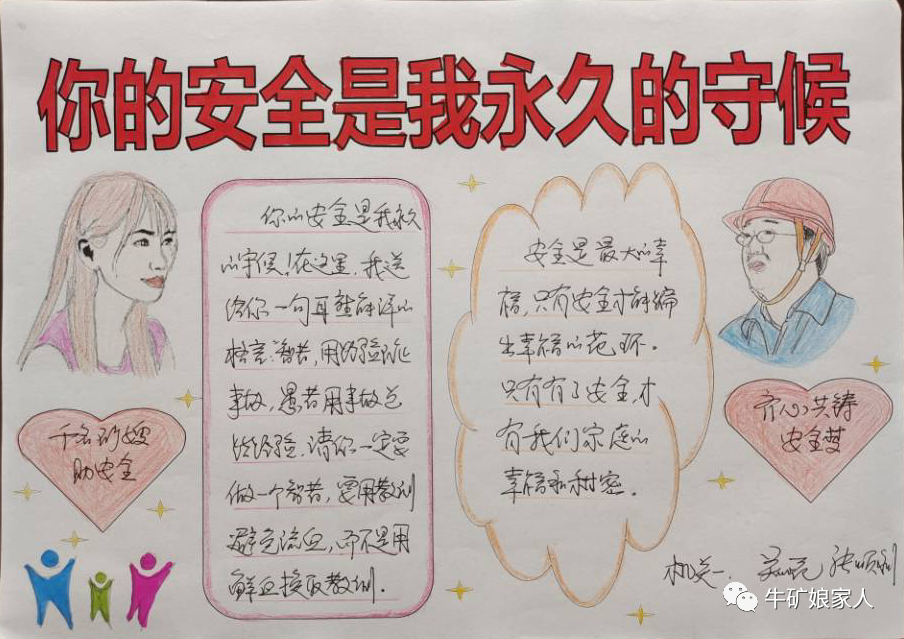 你的安全是我永久的守候
你的安全是我永久
的守候！在这里，我送
给你一句耳熟能详的
格言：智者，用经验防止
事故，愚者用事故总
结经验。请你一定要
做一个智者，要用教训
避免流血，而不是用
鲜血换取教训。
安全是最大的幸
福，只有安全才能编
出幸福的花环。
只有有了安全，才
有我们家庭的
幸福和甜密。
千名矿嫂
助安全
齐心共铸
安全梦
机关一 张顺利
牛矿娘家人